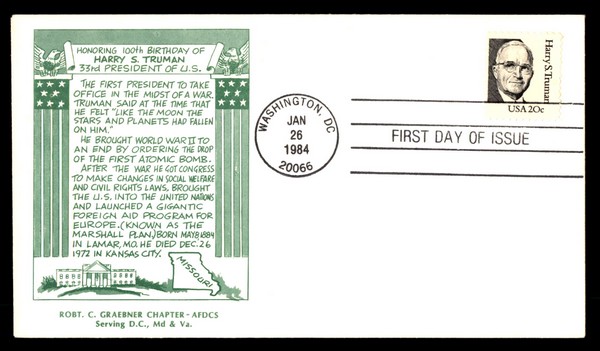 HONORING 100th BIRTHDAY OF
HARRY S. TRUMAN
33RD PRESIDENT OF U.S.
THE FIRST PRESIDENT TO TAKE
OFFICE IN THE MIDST OF A WAR,
TRUMAN SAID AT THE TIME THAT
HE FELT "LIKE THE MOON THE
STARS AND PLANETS HAD FALLEN
ON HIM."
HE BROUGHT WORLD WAR II TO
AN END BY ORDERING THE DROP
OF THE FIRST ATOMIC BOMB.
AFTER THE WAR HE GOT CONGRESS
TO MAKE CHANGES IN SOCIAL WELFARE
AND CIVIL RIGHTS LAWS, BROUGHT
THE U.S. INTO THE UNITED NATIONS
AND LAUNCHED A GIGANTIC
FOREIGN AID PROGRAM FOR
EUROPE. (KNOWN AS THE
MARSHALL PLAN.) BORN MAY 8, 1884
IN LAMAR, MO. HE DIED DEC. 26
1972 IN KANSAS CITY.
MISSOURI
ROBT. C. GRAEBNER CHAPTER - AFDCS
Serving D.C., Md & Va.
WASHINGTON, DC
JAN
26
1984
20066
Harry S. Truman
USA 20c
FIRST DAY OF ISSUE